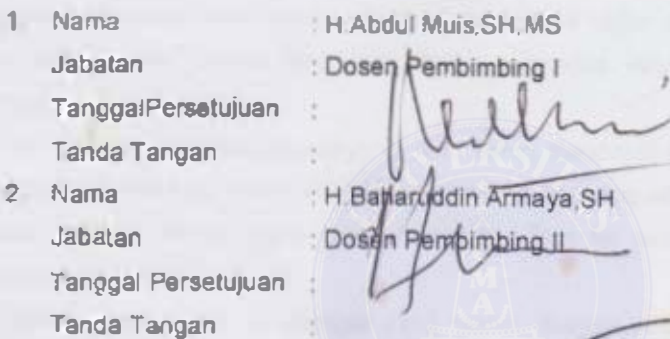 1 Nama : H.Abdul Muis,SH,MS
Jabatan : Dosen Pembimbing I
TanggalPersetujuan :
Tanda Tangan :
2 Nama : H.Baharuddin Armaya,SH
Jabatan : Dosen Pembimbing II
Tanggal Persetujuan :
Tanda Tangan :